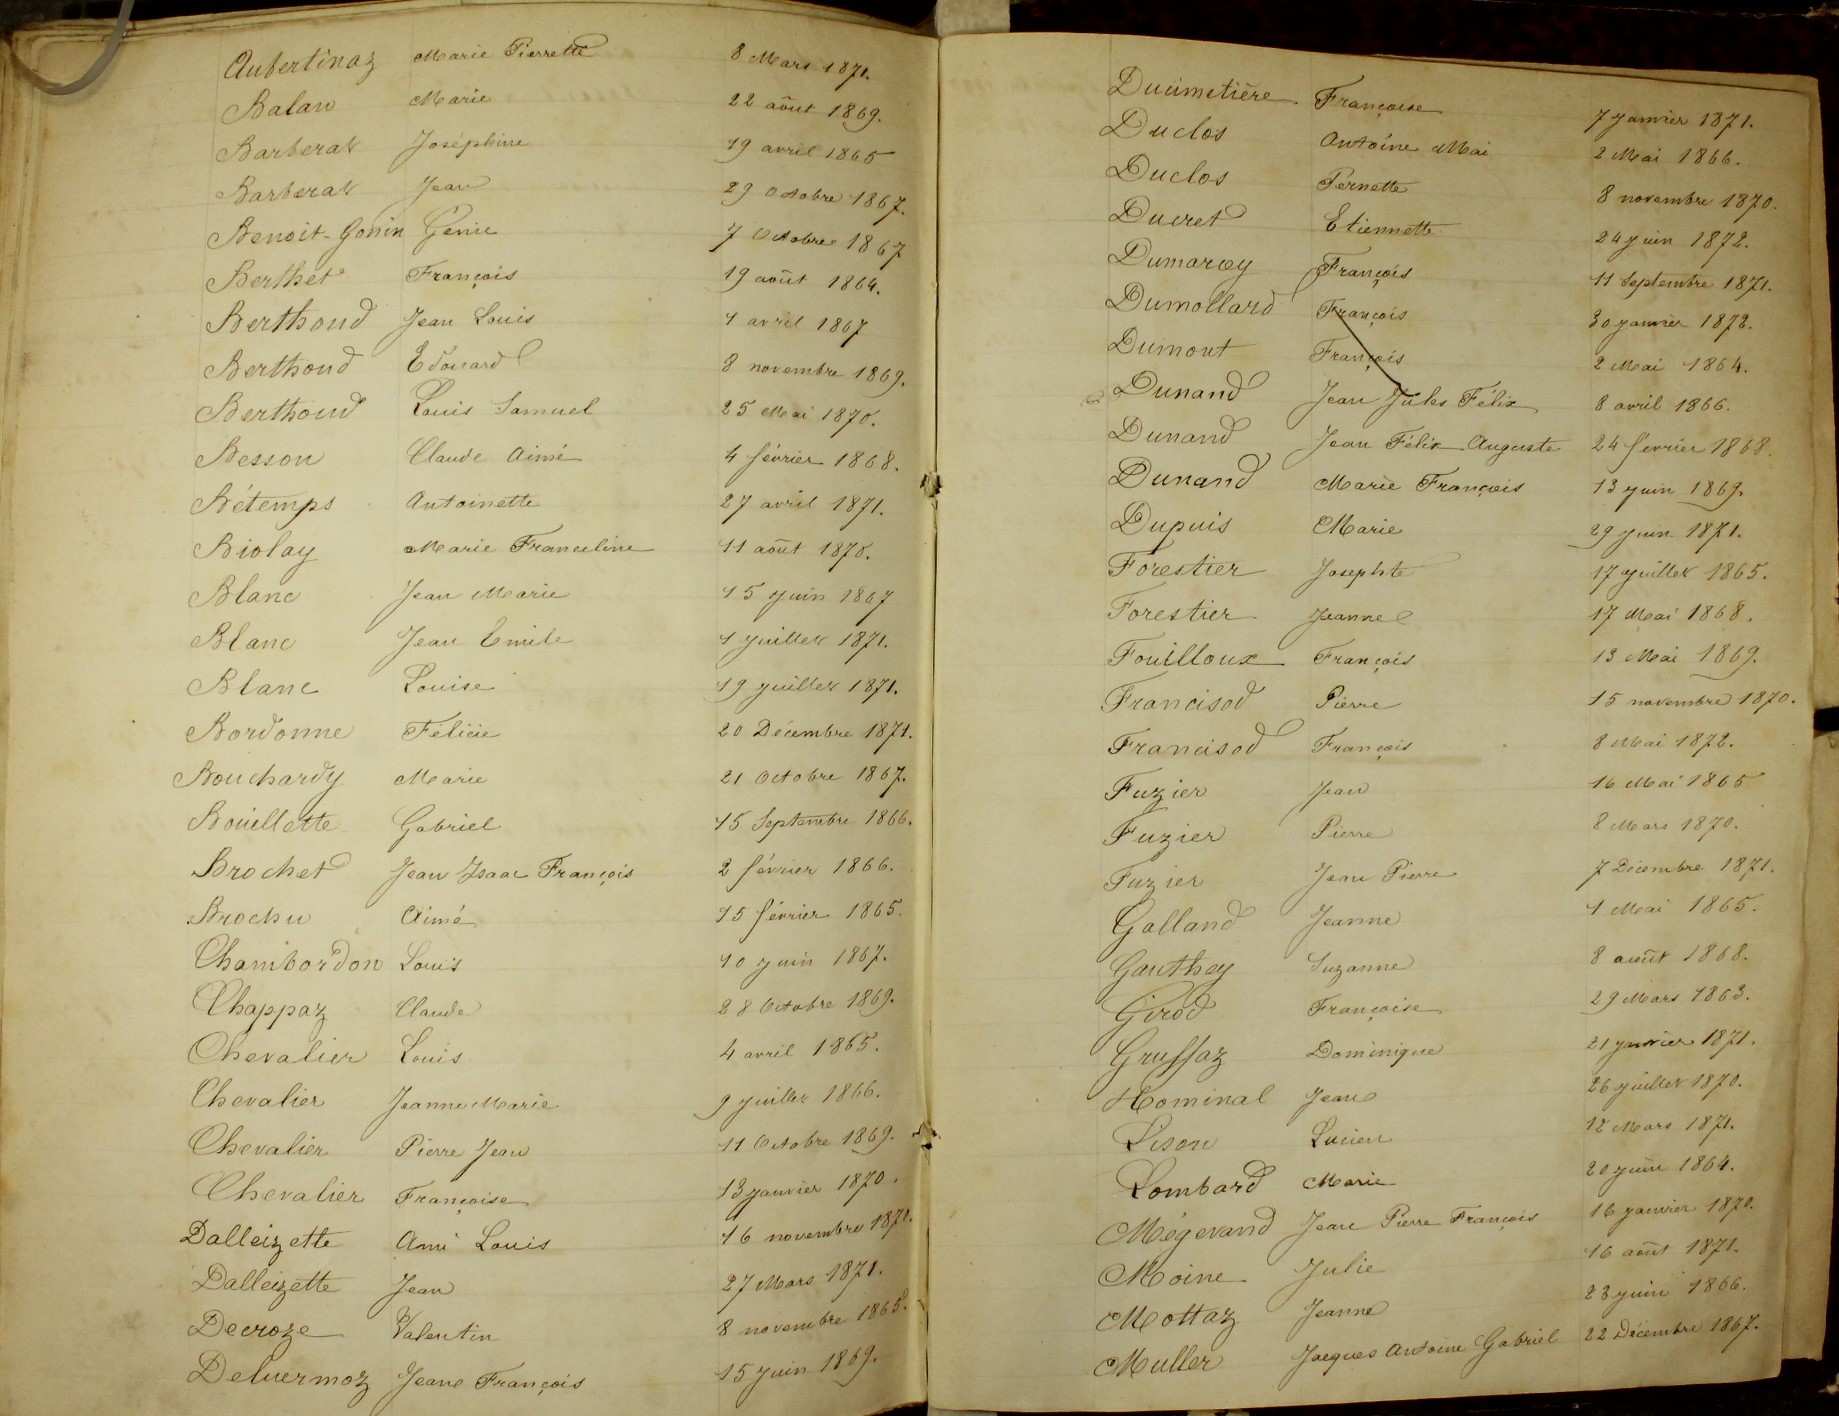 Aubertinaz Marie Pierrette 8 Mars 1871.
Balan Marie 22 août 1869.
Barberat Joséphine 19 avril 1865
Barberat Jean 29 Octobre 1867.
Benoit-Gonin Génie 7 Octobre 1867
Berthet François 19 août 1864.
Berthoud Jean Louis 1 avril 1867
Berthoud Edouard 8 novembre 1869.
Berthoud Louis Samuel 25 Mai 1870.
Besson Claude Aimé 4 février 1868.
Bétemps Antoinette 27 avril 1871.
Biolay Marie Franceline 11 août 1870.
Blanc Jean Marie 15 juin 1867
Blanc Jean Emile 1 juillet 1871.
Blanc Louise 19 juillet 1871.
Bordonne Félicie 20 Décembre 1871.
Bouchardy Marie 21 Octobre 1867.
Bouillette Gabriel 15 Septembre 1866.
Brochet Jean Isaac François 2 février 1866.
Brochu Aimé 15 février 1865.
Chambordon Louis 10 juin 1867.
Chappaz Claude 28 Octobre 1869.
Chevalier Louis 4 avril 1865.
Chevalier Jeanne Marie 9 juillet 1866.
Chevalier Pierre Jean 11 Octobre 1869.
Chevalier Françoise 13 janvier 1870.
Dalleizette Ami Louis 16 novembre 1871.
Dalleizette Jean 27 Mars 1871.
Decroze Valentin 8 novembre 1865.
Deluermoz Jean François 15 juin 1869.
Ducimetière Françoise 7 janvier 1871.
Duclos Antoine Mai 2 Mai 1866.
Duclos Pernette 8 novembre 1870.
Ducret Etiennette 24 juin 1872.
Dumarcey François 11 Septembre 1871.
Dumollard François 30 janvier 1872.
Dumont François 2 Mai 1864.
Dunand Jean Jules Félix 8 avril 1866.
Dunand Jean Félix Auguste 24 février 1868.
Dunand Marie François 13 juin 1869.
Dupuis Marie 29 juin 1871.
Forestier Josephte 17 juillet 1865.
Forestier Jeanne 17 Mai 1868.
Fouilloux François 13 Mai 1869.
Francisod Pierre 15 novembre 1870.
Francisod François 8 Mai 1872.
Fuzier Jean 16 Mai 1865
Fuzier Pierre 8 Mars 1870.
Fuzier Jean Pierre 7 Décembre 1871.
Galland Jeanne 1 Mai 1865.
Gauthey Suzanne 8 août 1868.
Girod Françoise 29 Mars 1863.
Gruffaz Dominique 21 janvier 1871.
Hominal Jean 26 juillet 1870.
Lison Lucien 12 Mars 1871.
Lombard Marie 20 juin 1864.
Mégevand Jean Pierre François 16 janvier 1870.
Moine Julie 16 août 1871.
Mottaz Jeanne 23 juin 1866.
Muller Jacques Antoine Gabriel 22 Décembre 1867.